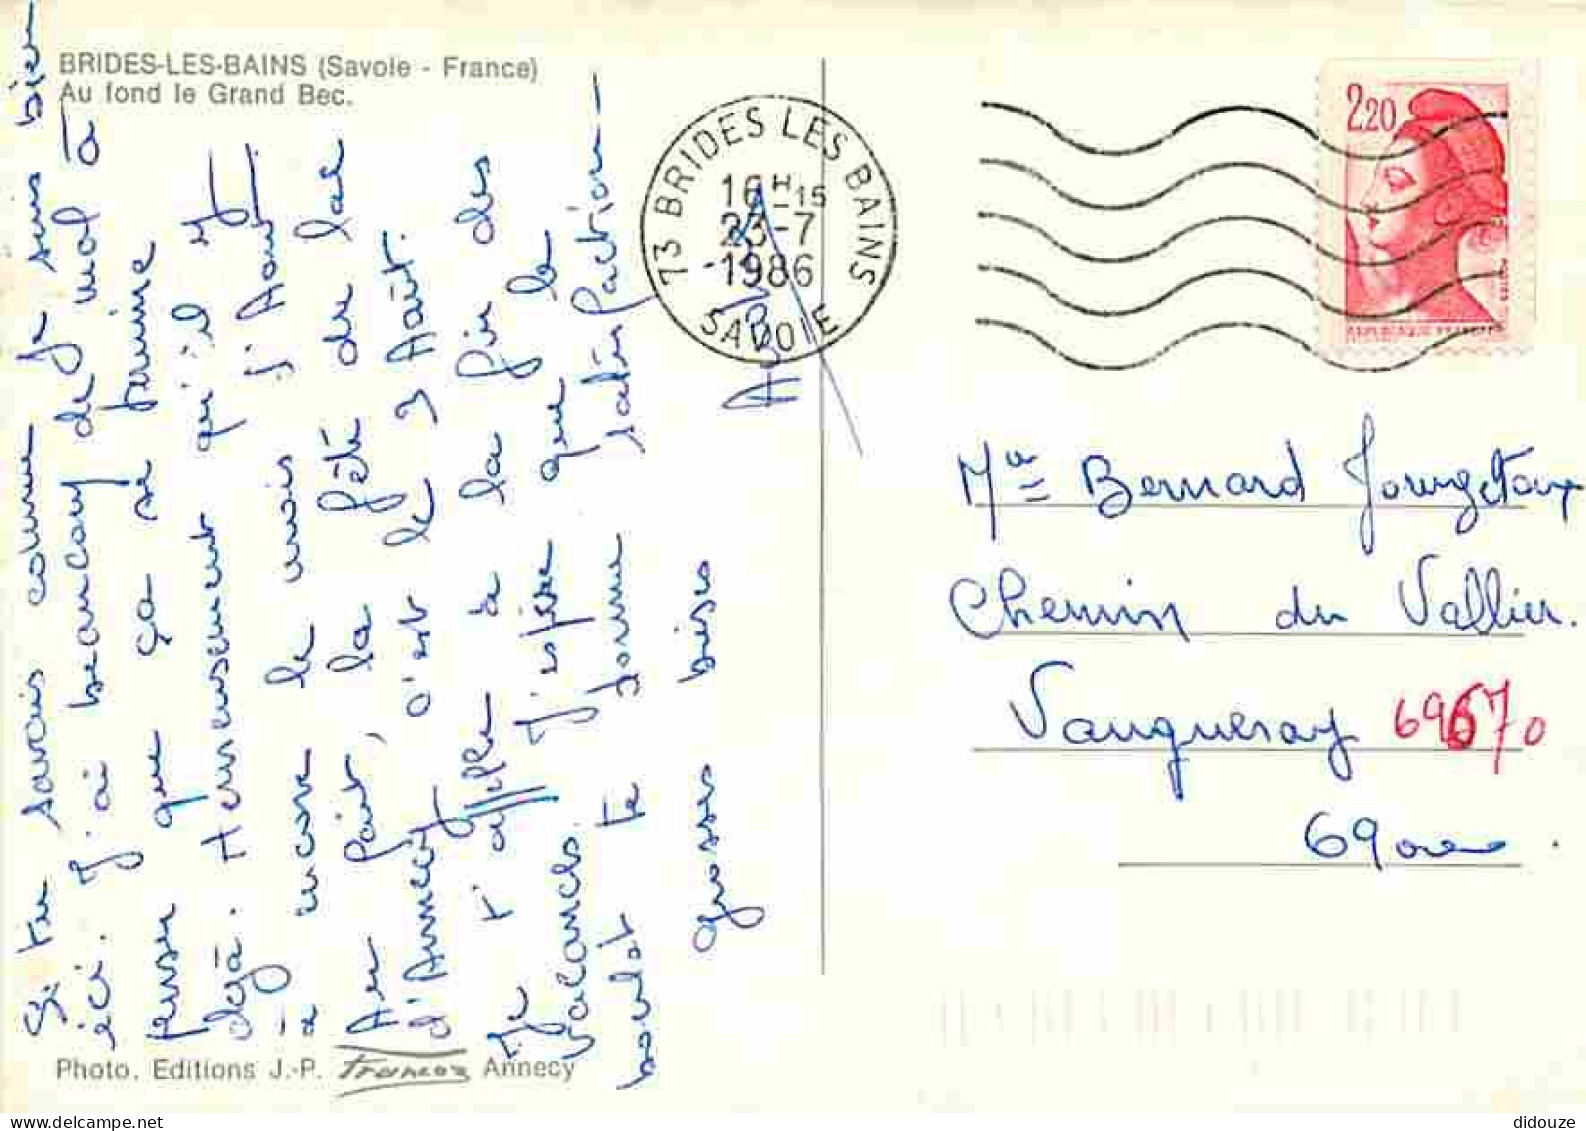 BRIDES-LES-BAINS (Savoie - France)
Au fond le Grand Bec.
Si tu savais comme je suis bien
ici. J'ai beaucoup de mal à
penser que ça se termine
déjà. Heureusement qu'il y
a encore le mois d'Août.
Au fait, la fête du lac
d'Annecy, c'est le 3 Août.
Je t'appelle à la fin des
vacances. J'espère que le
boulot te donne satisfaction
grosses bises
73 BRIDES LES BAINS
16H15
23-7
-1986
SAVOIE
2,20
REPUBLIQUE FRANÇAISE
Bernard
Chemin du Vallier.
Vaugneray 69670
69
Photo. Editions J.-P. Francoz Annecy
didouze